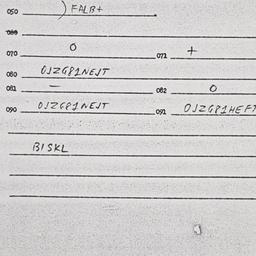 050 ) FALB+
060
070 0 071 +
080 OJZGP1NEJT
081 - 082 0
090 OJZGP1NEJT 091 OJZGP1HEFT
BISKL